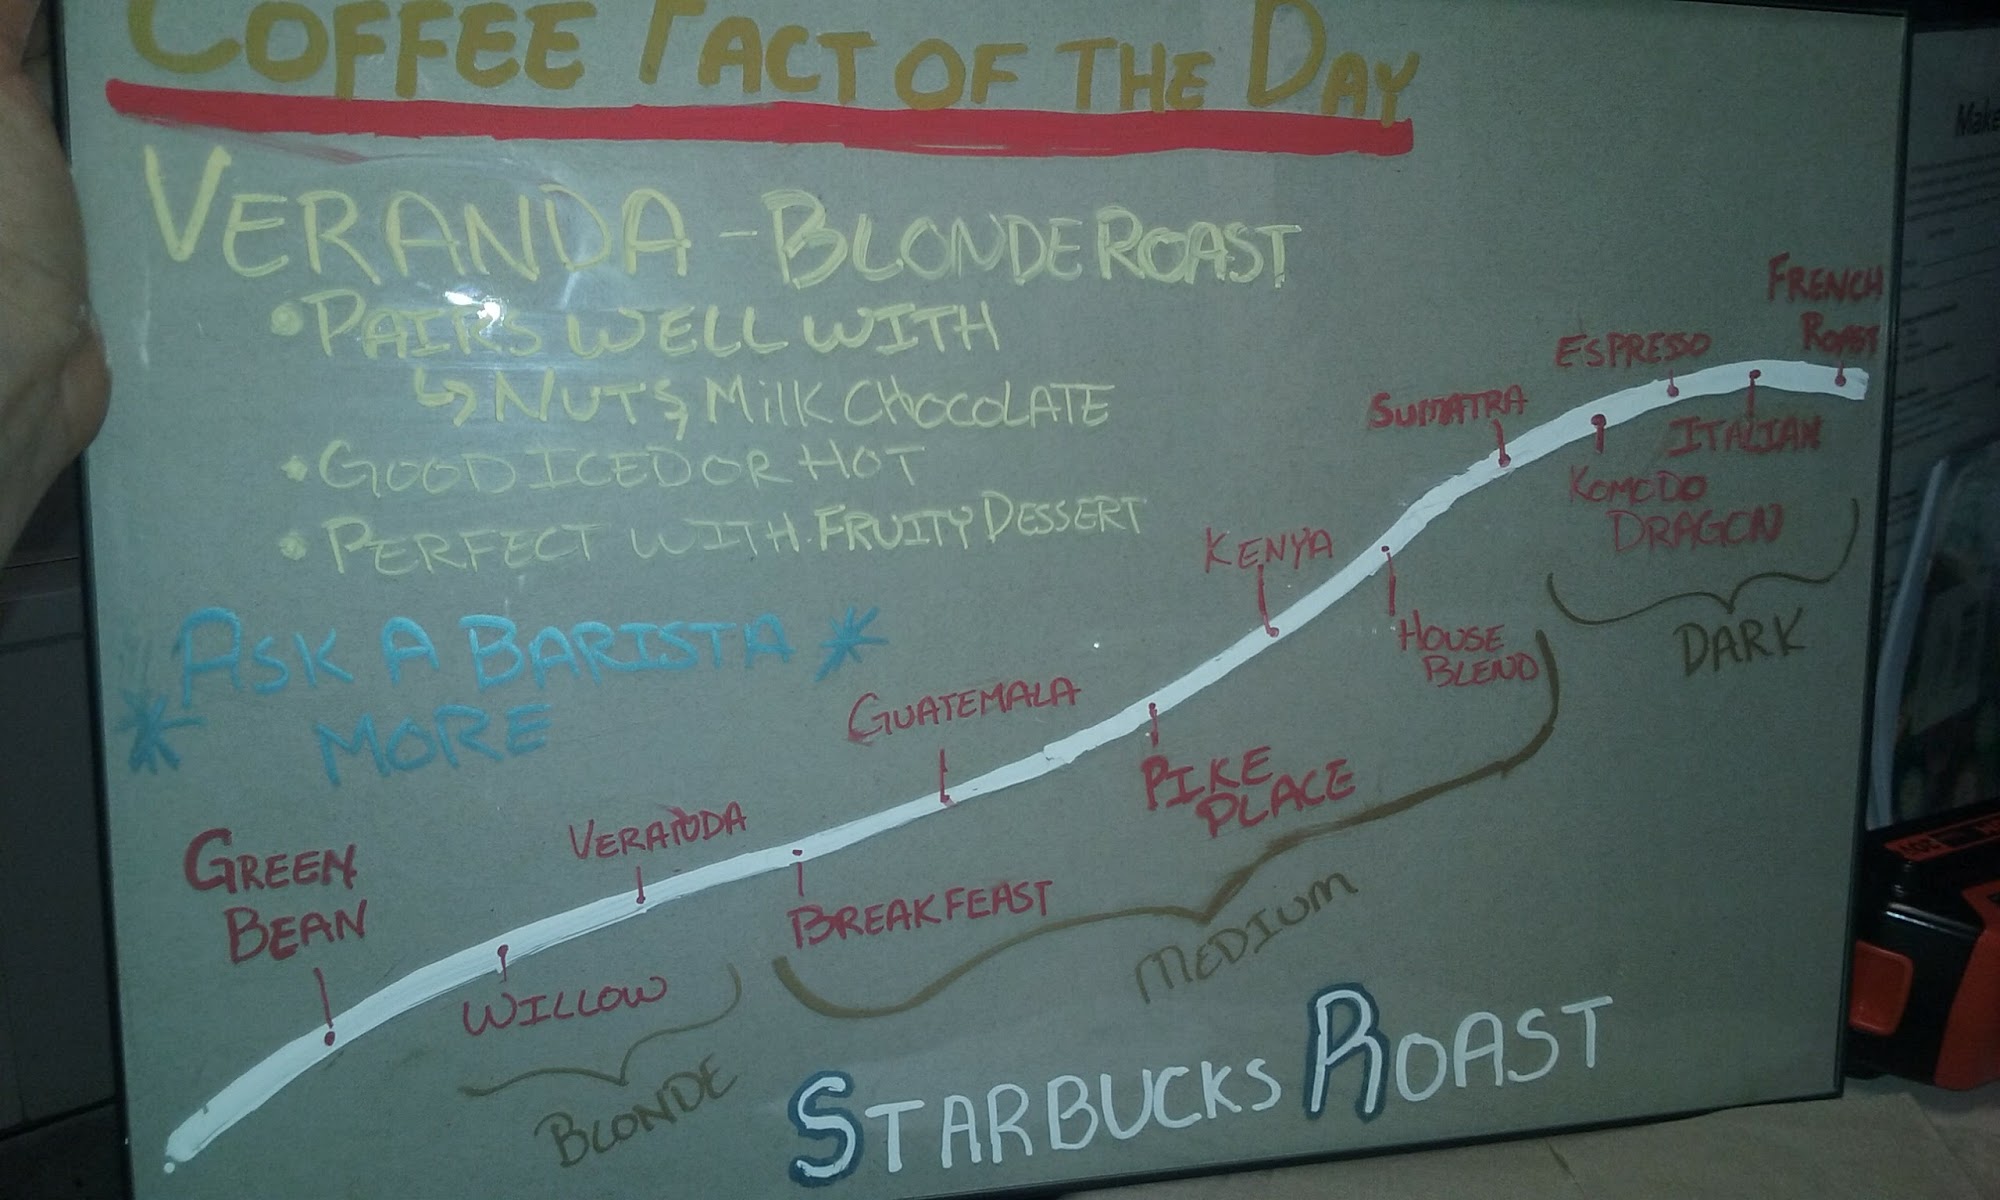 COFFEE FACT OF THE DAY
VERANDA - BLONDE ROAST
• PAIRS WELL WITH
↳ NUTS & MILK CHOCOLATE
• GOOD ICED OR HOT
• PERFECT WITH FRUITY DESSERT
* ASK A BARISTA *
MORE
FRENCH
ROAST
ESPRESSO
SUMATRA
ITALIAN
KOMODO
DRAGON
KENYA
HOUSE
BLEND
DARK
GUATEMALA
PIKE
PLACE
VERANDA
GREEN
BEAN
BREAKFEAST
MEDIUM
WILLOW
BLONDE
STARBUCKS ROAST
Make